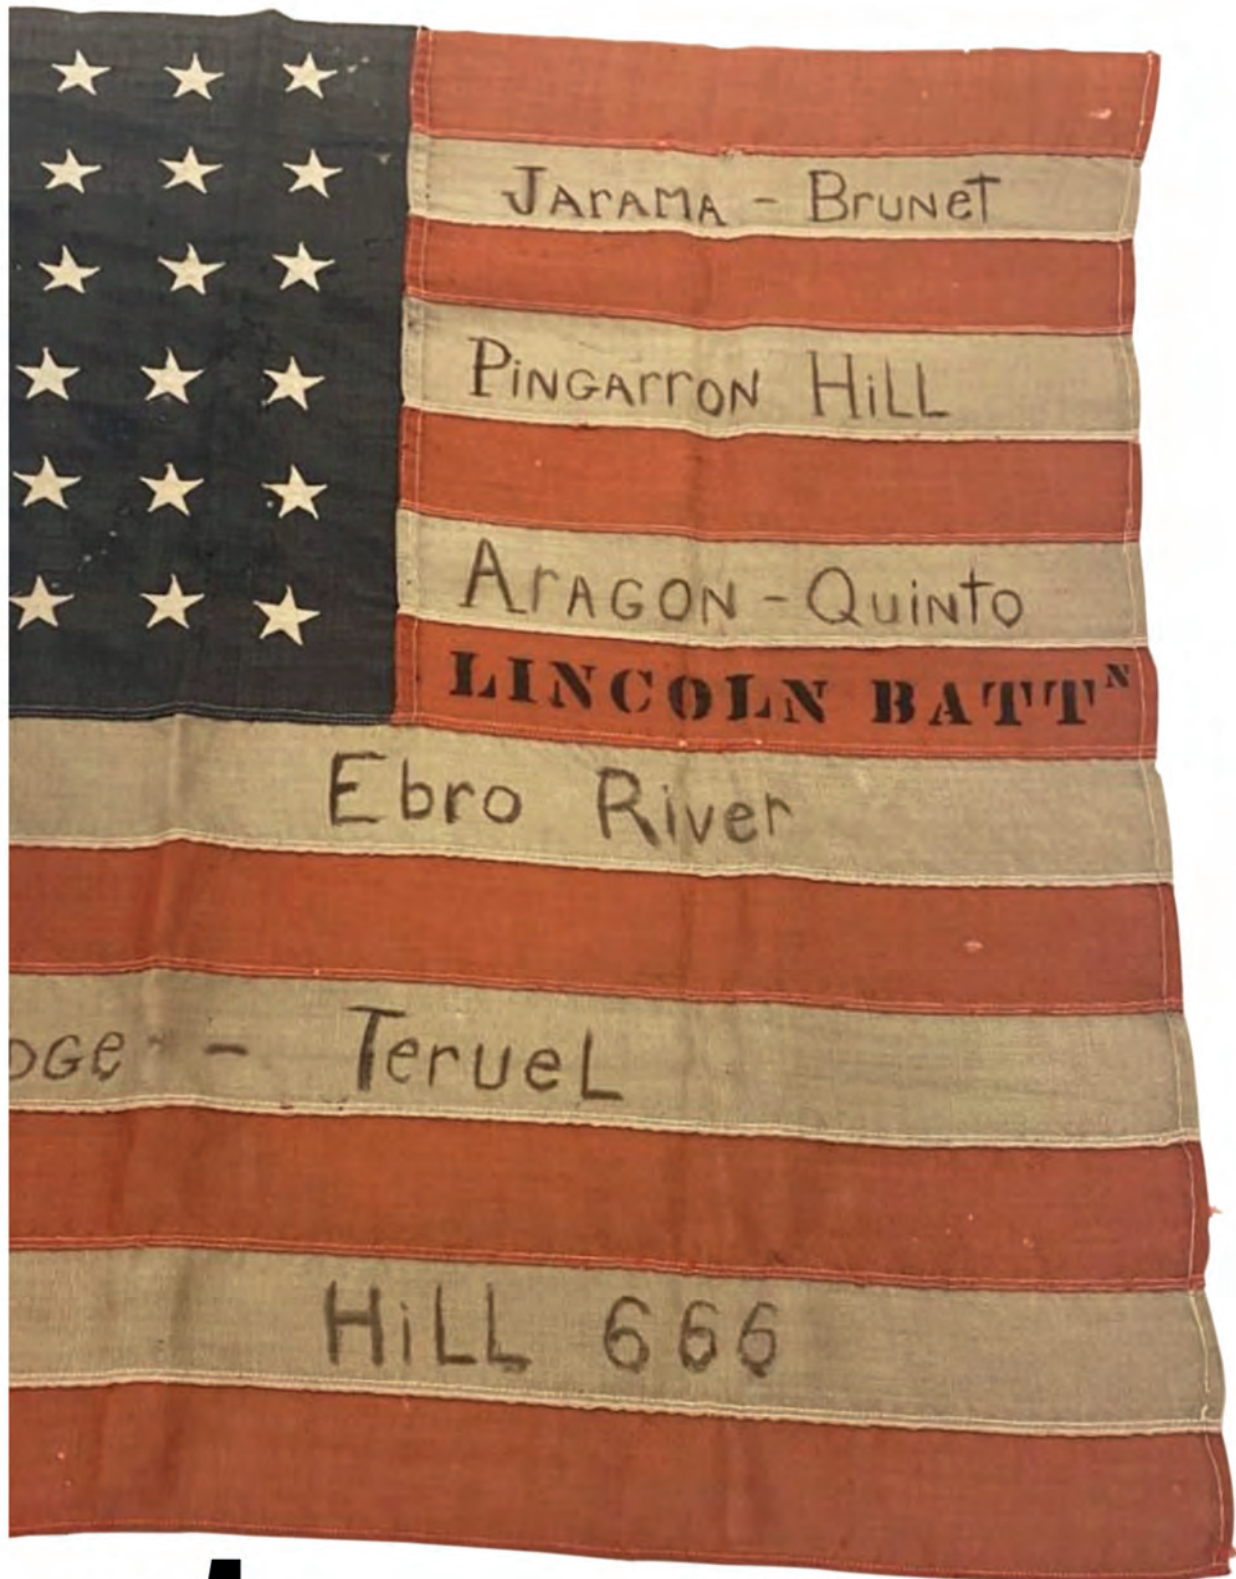 JArAMA - BruNeT
PiNGArrON HiLL
ArAGON - QuiNto
LINCOLN BATTᴺ
Ebro River
- TerueL
HiLL 666